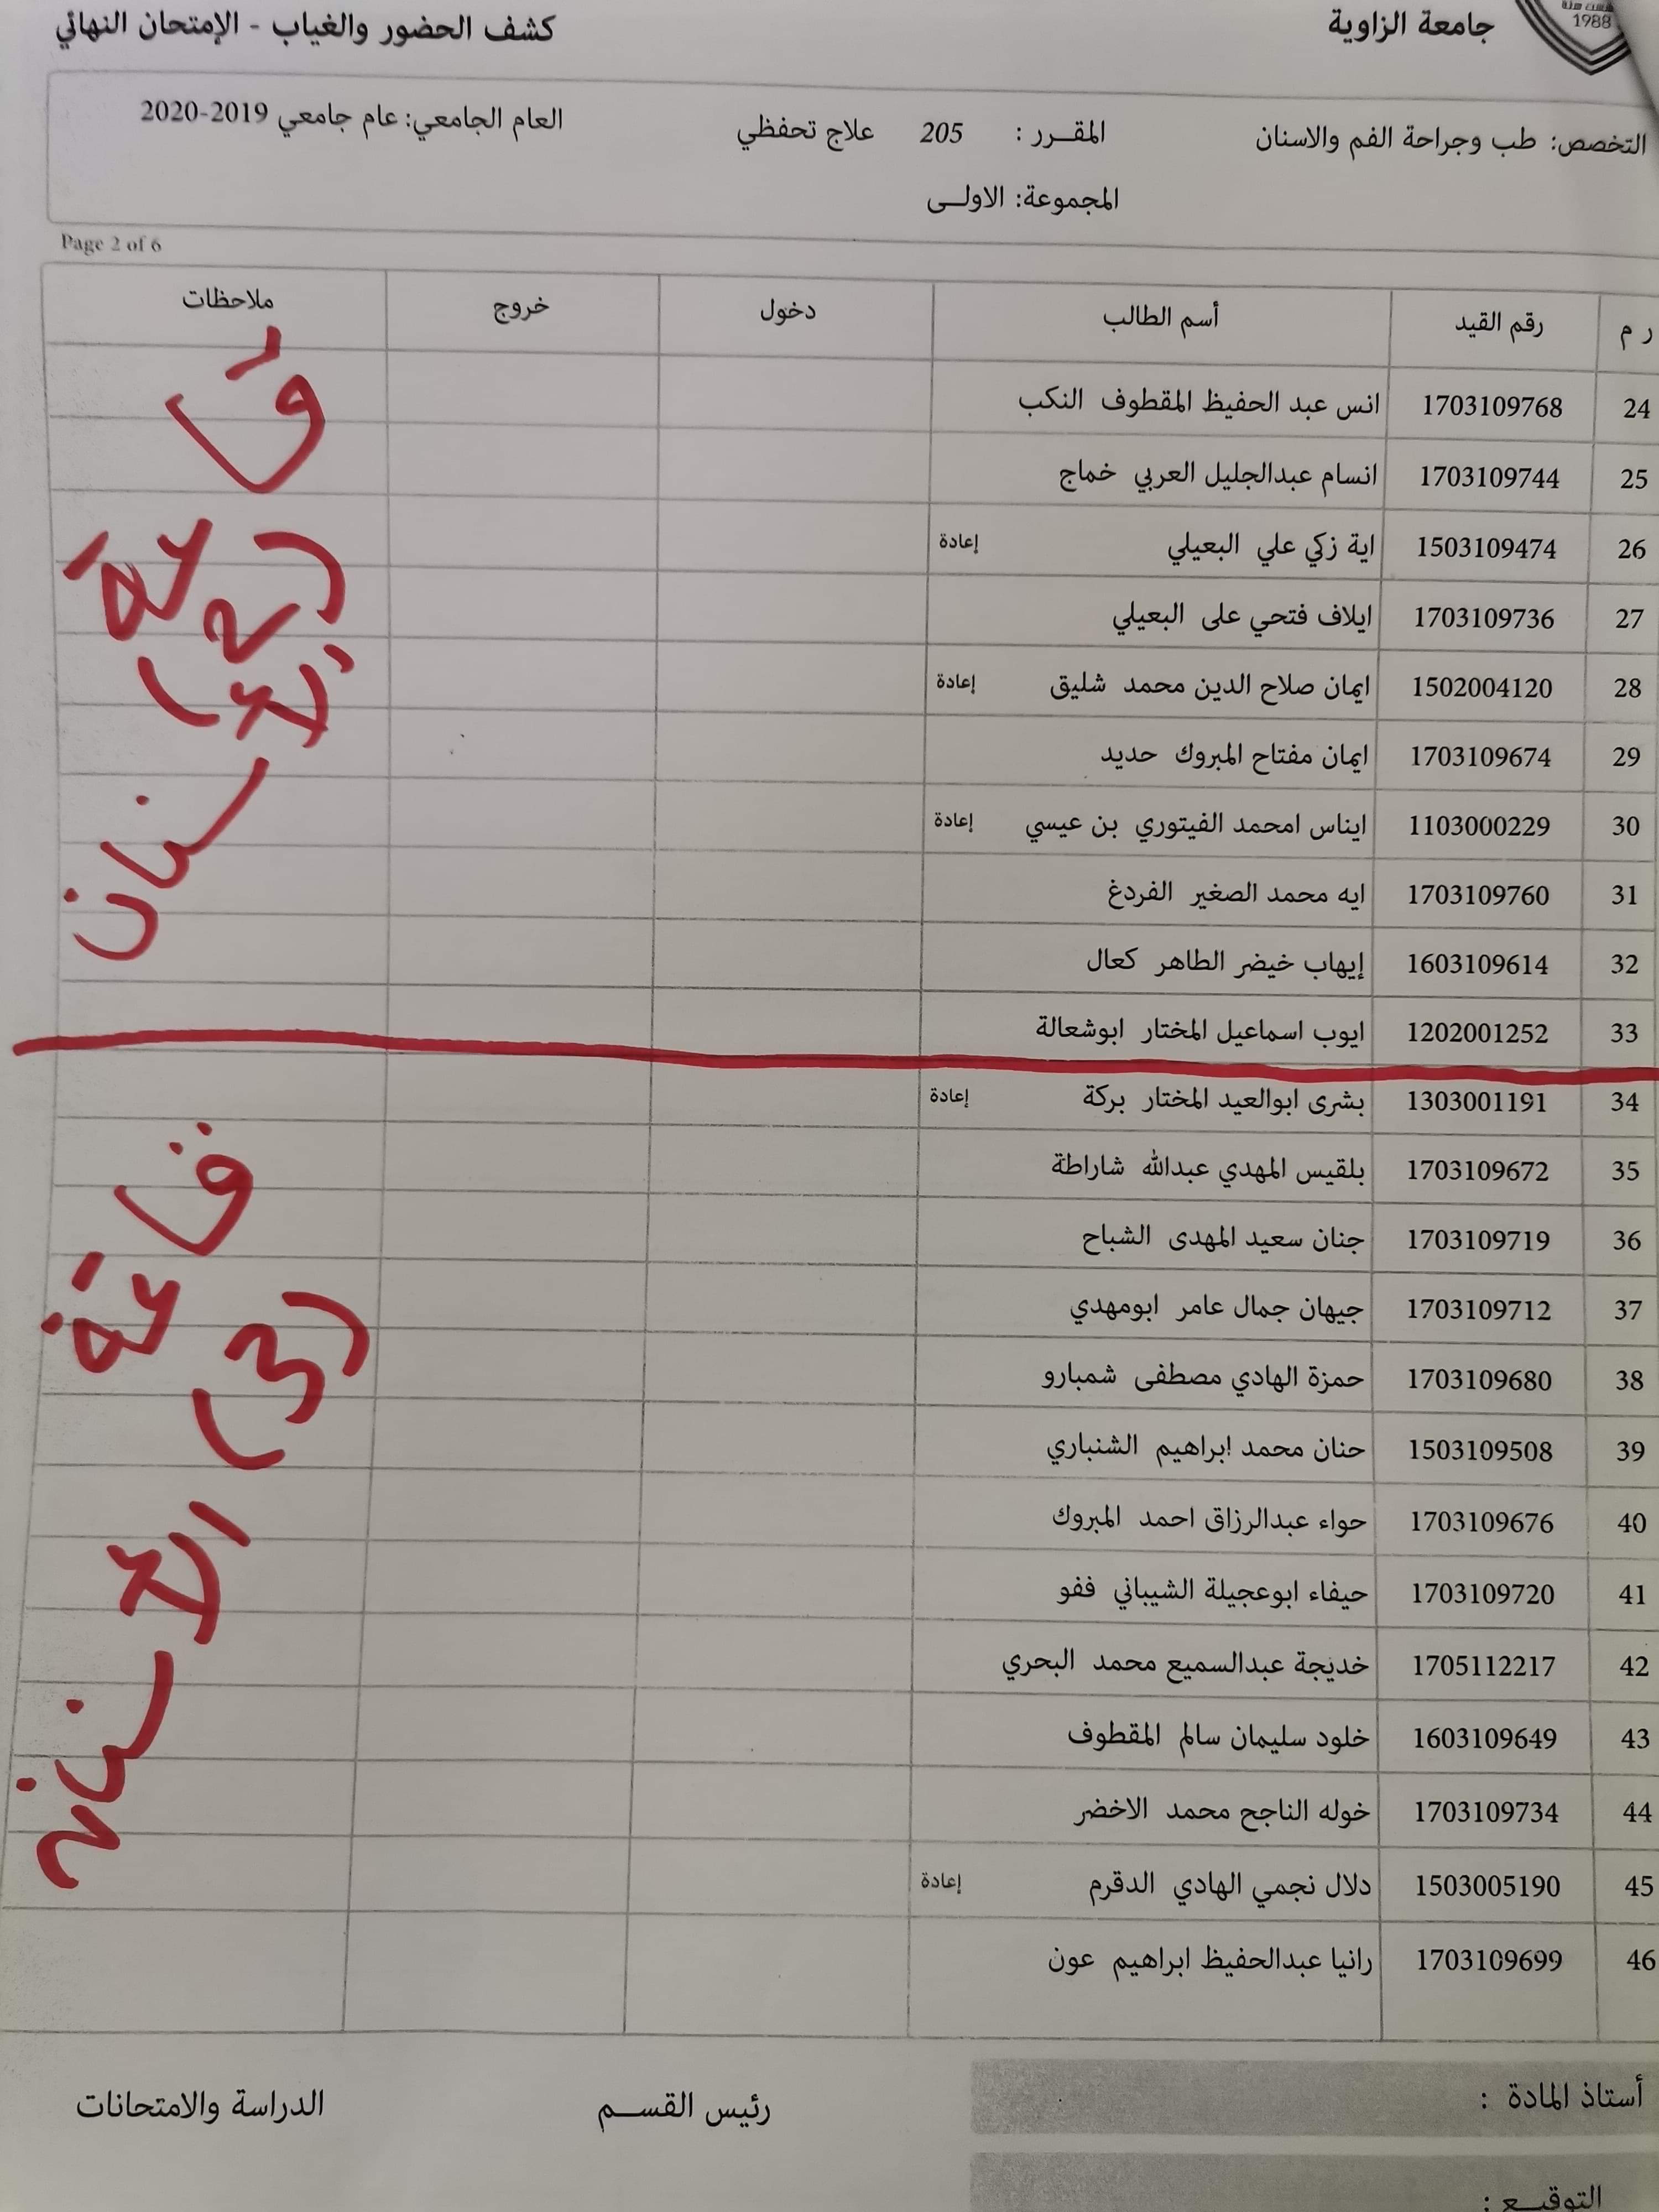 1988
جامعة الزاوية
كشف الحضور والغياب - الإمتحان النهائي
التخصص: طب وجراحة الفم والاسنان
المقـــرر : 205 علاج تحفظي
العام الجامعي: عام جامعي 2019-2020
المجموعة: الاولـــى
Page 2 of 6
ر م رقم القيد أسم الطالب دخول خروج ملاحظات
24 1703109768 انس عبد الحفيظ المقطوف النكب
25 1703109744 انسام عبدالجليل العربي خماج
26 1503109474 اية زكي علي البعيلي إعادة
27 1703109736 ايلاف فتحي على البعيلي
28 1502004120 ايمان صلاح الدين محمد شليق إعادة
29 1703109674 ايمان مفتاح المبروك حديد
30 1103000229 ايناس امحمد الفيتوري بن عيسي إعادة
31 1703109760 ايه محمد الصغير الفردغ
32 1603109614 إيهاب خيضر الطاهر كعال
33 1202001252 ايوب اسماعيل المختار ابوشعالة
قاعة (2) الأسنان
34 1303001191 بشرى ابوالعيد المختار بركة إعادة
35 1703109672 بلقيس المهدي عبدالله شاراطة
36 1703109719 جنان سعيد المهدى الشباح
37 1703109712 جيهان جمال عامر ابومهدي
38 1703109680 حمزة الهادي مصطفى شمبارو
39 1503109508 حنان محمد ابراهيم الشنباري
40 1703109676 حواء عبدالرزاق احمد المبروك
41 1703109720 حيفاء ابوعجيلة الشيباني ففو
42 1705112217 خديجة عبدالسميع محمد البحري
43 1603109649 خلود سليمان سالم المقطوف
44 1703109734 خوله الناجح محمد الاخضر
45 1503005190 دلال نجمي الهادي الدقرم إعادة
46 1703109699 رانيا عبدالحفيظ ابراهيم عون
قاعة (3) الأسنان
أستاذ المادة :
رئيس القســـم
الدراسة والامتحانات
التوقيـــع :